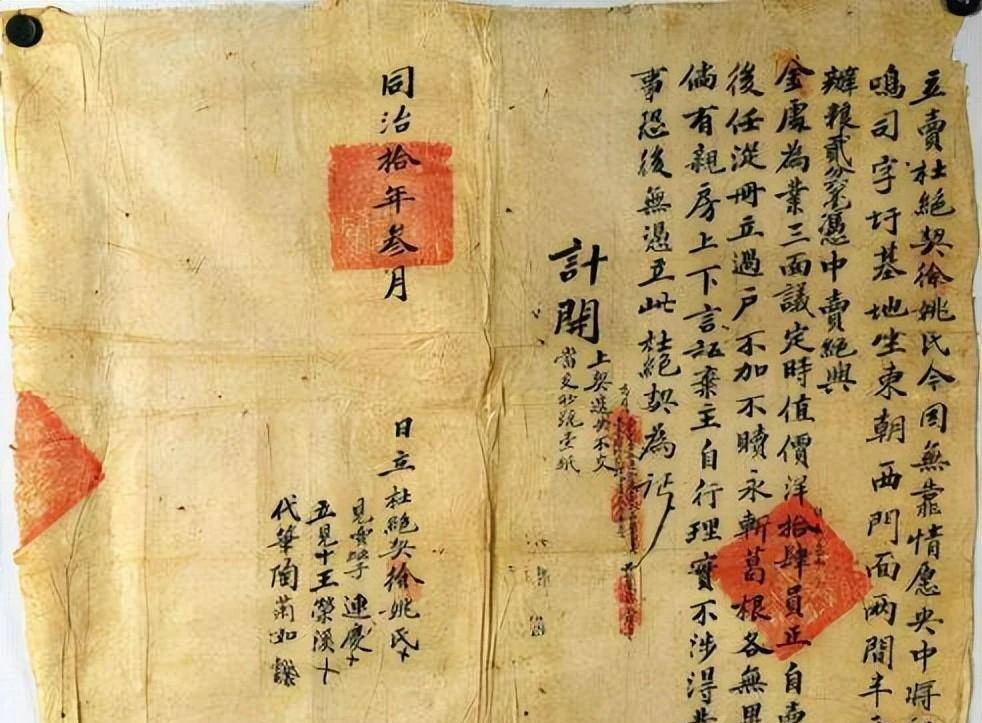 立賣杜絕契徐姚氏今因無靠情愿央中將
鳴司字圩基地坐東朝西門面兩間半
辦粮貳分憑中賣絕與
金處為業三面議定時值價洋拾肆員正自賣
後任從冊立過戶不加不贖永斬葛根各無異
倘有親房上下言話棄主自行理實不涉得業
事恐後無憑立此杜絕契為証
計開
上契遺失不交
當交 號壹紙
同治拾年叁月
日立杜絕契徐姚氏十
見賣 連慶十
五見十王榮溪十
代筆陶蘭如